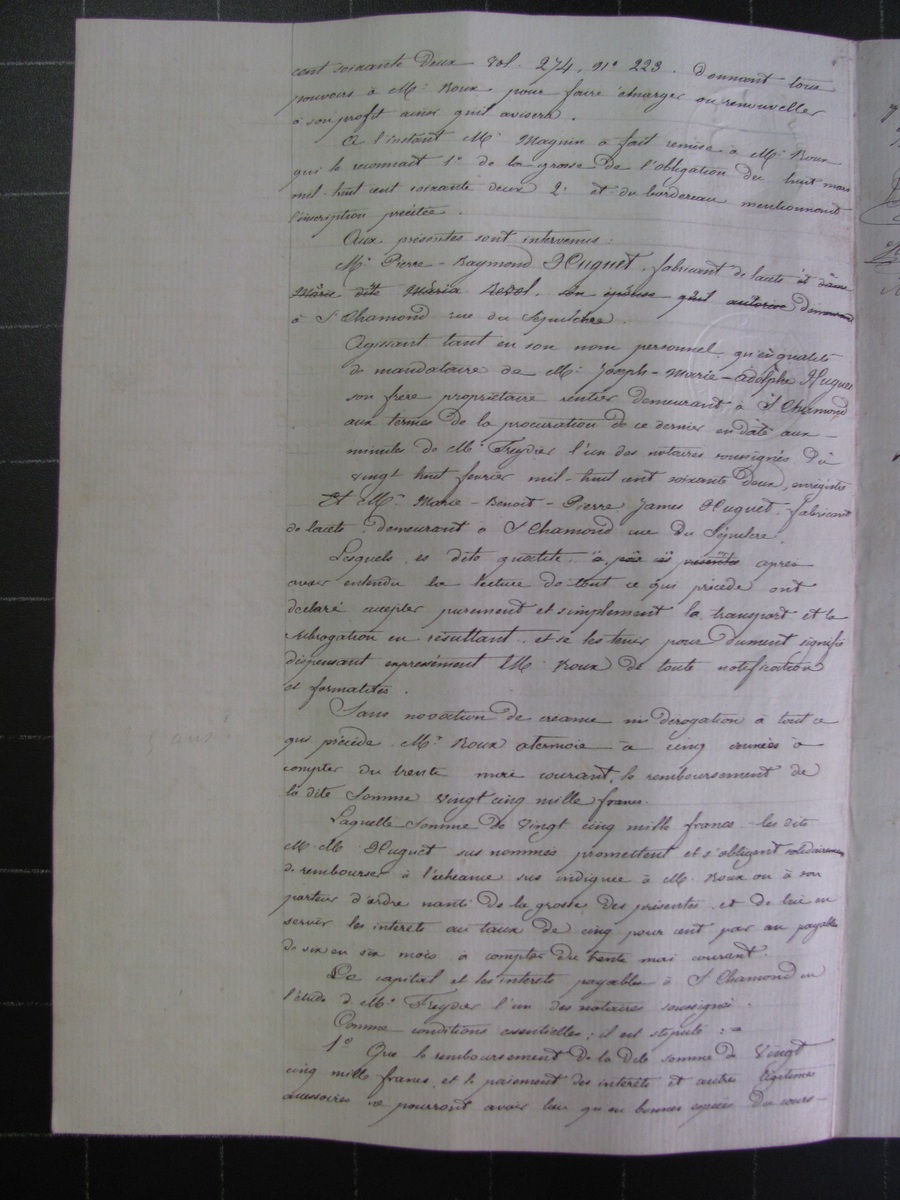 cent soixante deux vol. 274, n° 223. Donnant tous
pouvoirs à Mr Roux pour faire émarger ou renouveller
à son profit ainsi qu'il avisera.
A l'instant Mr Maguin a fait remise à Mr Roux
qui le reconnait 1° de la grosse de l'obligation du huit mars
mil huit cent soixante deux 2° et du bordereau mentionnant
l'inscription précitée.
Aux présentes sont intervenus:
Mr Pierre-Raymond Huguet, fabricant de lacets et dame
Marie dite Maria Revol, son épouse qu'il autorise demeurant
à St Chamond rue du Sépulcre.
Agissant tant en son nom personnel, qu'en qualité
de mandataire de Mr Joseph-Marie-Adolphe Huguet
son frère propriétaire rentier demeurant à St Chamond
aux termes de la procuration de ce dernier en date aux
minutes de Me Freydier l'un des notaires soussignés du
vingt huit février mil-huit cent soixante deux, enregistré
Et Mr Marie-Benoit-Pierre James Huguet, fabricant
de lacets demeurant à St Chamond rue du Sépulcre.
Lesquels, es dite qualité, après
avoir entendu la lecture de tout ce qui précède ont
déclaré accepter purement et simplement la transport et la
subrogation en résultant, et se les tenir pour dument signifié
dispensant expressément Mr Roux de toute notification
et formalités.
Sans novation de creance ni dérogation à tout ce
qui précède Mr Roux atermoie à cinq années à
compter du trente mai courant, le remboursement de
la dite somme vingt cinq mille francs.
5 ans
Laquelle somme de vingt cinq mille francs les dits
M.M. Huguet sus nommés promettent et s'obligent solidairement
de rembourser à l'écheance sus indiquée à Mr Roux ou à son
porteur d'ordre nanti de la grosse des présentes, et de lui en
servir les interêts au taux de cinq pour cent par an payable
de six en six mois à compter du trente mai courant.
Le capital et les interêts payables à St Chamond en
l'étude de Me Freydier l'un des notaires soussigné.
Comme conditions essentielles, il est stipulé:
1° Que le remboursement de la dite somme de vingt
cinq mille francs, et le paiement des interêts et autres légitimes
accessoires ne pourront avoir lieu qu'en bonnes espèces du cours